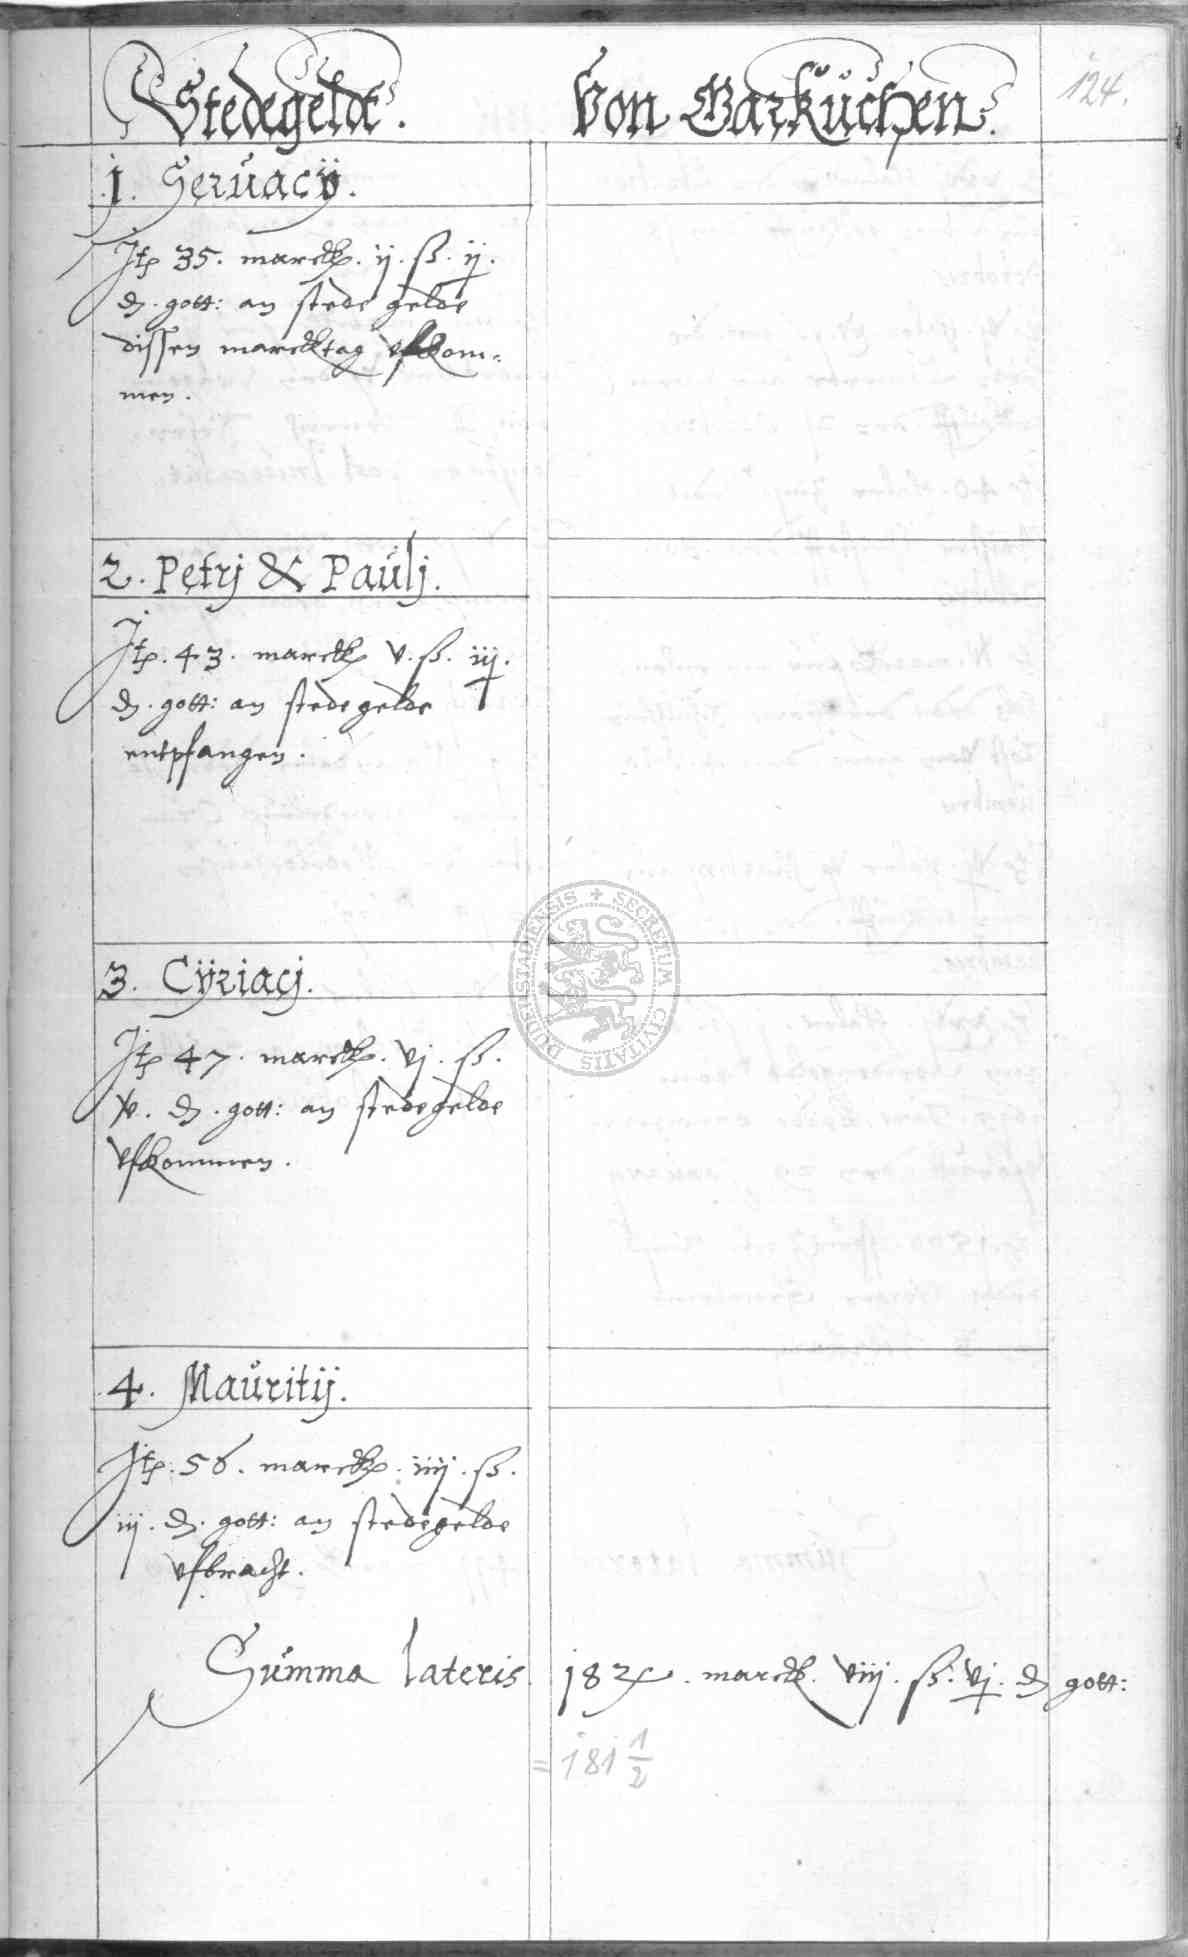 Stedegeldt. Von Garkuchen.
124.
1. Servacij.
Itp 35. marckh. ij. ß. ij.
d. gott: an stede gelde
dissen marcktag uffkom-
men.
2. Petrj & Paulj.
Itp. 43. marckh v. ß. iij.
d. gott: an stedegelde
entpfangen.
3. Cijriacj.
Itp 47. marckh. vj. ß.
v. d. gott: an stedegelde
uffkommen.
4. Mauritij.
Itp. 56. marckh. iiij. ß.
iij. d. gott: an stedegelde
ufbracht.
Summa lateris 182. marckh. viij. ß. vj. d gott:
= 181 1/2
SECRETUM CIVITATIS DUDERSTADIENSIS